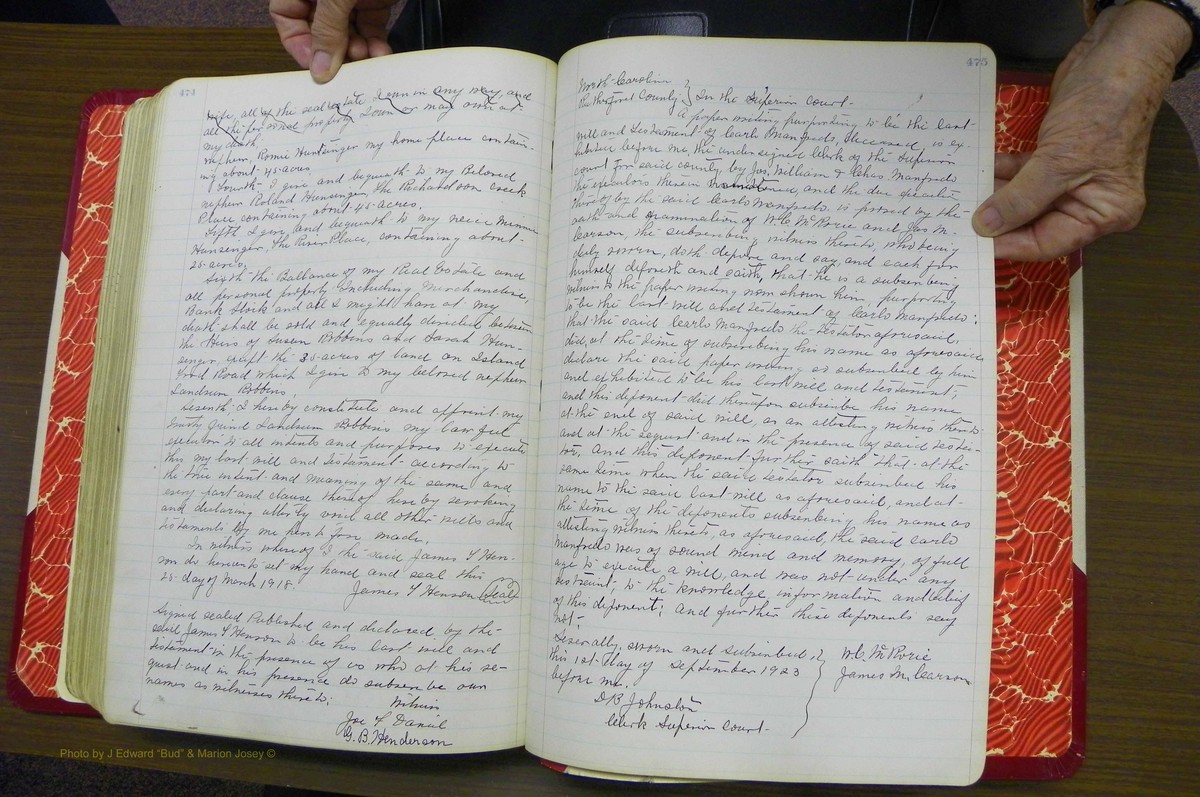 474
wife, all of the real estate I own in any way and
all the personal property I own or may own at
my death.
nephew, Romie Huntsinger my home place contain-
ing about 45 acres
Fourth I give and bequeath to my Beloved
nephew Roland Hunsinger the Richardson Creek
Place containing about 45 acres.
Fifth I give and bequeath to my niece Minnie
Hunsenger, The River Place, containing about
25 acres,
Sixth the Ballance of my Real Estate and
all personal property Including Merchandise,
Bank Stock and all I might have at my
death shall be sold and equally devided between
the Heirs of Susan Robbins and Sarah Hun-
senger, except the 35 acres of land on Island
Ford Road which I give to my beloved nephew
Landrum Robbins,
Seventh I hereby constitute and appoint my
trusty friend Landrum Robbins my lawful
executor to all intents and purposes to execute
this my last will and testament according to
the true intent and meaning of the same and
every part and clause thereof here by revoking
and declaring utterly void all other wills and
testaments by me here to fore made.
In witness whereof I the said James Y Hen-
son do hereunto set my hand and seal this
25 day of March 1918.
James Y Henson (Seal)
Signed sealed Published and declared by the
said James Y Henson to be his last will and
testament in the presence of us who at his re-
quest and in his presence do subscribe our
names as witnesses thereto;
Witness
Joe T Daniel
G. B. Henderson
475
North Carolina
Rutherford County } In the Superior Court-
A paper writing purporting to be the last
will and testament of Carlo Manfredo, deceased, is ex-
hibited before me, the undersigned Clerk of the Superior
Court for said county by Jos. William & Chas. Manfredo
the executors therein named, and the due execution
thereof by the said Carlo Manfredo is proved by the
oath and examination of W.C. McRorie and Jas M.
Carson, the subscribing witness thereto, who being
duly sworn, doth depose and say, and each for
himself deposeth and saith, that he is a subscribing
witness to the paper writing now shown him, purporting
to be the last will and testament of Carlo Manfredo;
that the said Carlo Manfredo the testator aforesaid,
did, at the time of subscribing his name as aforesaid
declare the said paper writing as subscribed by him
and exhibited to be his last will and testament;
and this deponent did thereupon subscribe his name
at the end of said will, as an attesting witness thereto
and at the request and in the presence of said testa-
tor. And this deponent further saith that at the
same time when the said testator subscribed his
name to the said last will as aforesaid, and at
the time of the deponents subscribing his name as
attesting witness thereto, as aforesaid, the said Carlo
Manfredo was of sound mind and memory, of full
age to execute a will, and was not under any
restraint, to the knowledge information and belief
of this deponent; And further these deponents say
not;
Severally, sworn and subscribed,
this 1st day of September 1923
before me.
D B Johnston
Clerk Superior Court-
W.C. McRorie
James M. Carson
Photo by J Edward "Bud" & Marion Josey ©